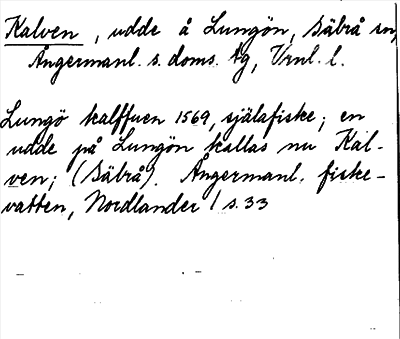 Kalven, udde å Lungön, Säbrå sn,
Ångermanl. s. doms. tg, Vrnl. l.
Lungö kalffuen 1569, själafiske; en
udde på Lungön kallas nu Kal-
ven; (Säbrå). Ångermanl. fiske-
vatten, Nordlander / s. 33